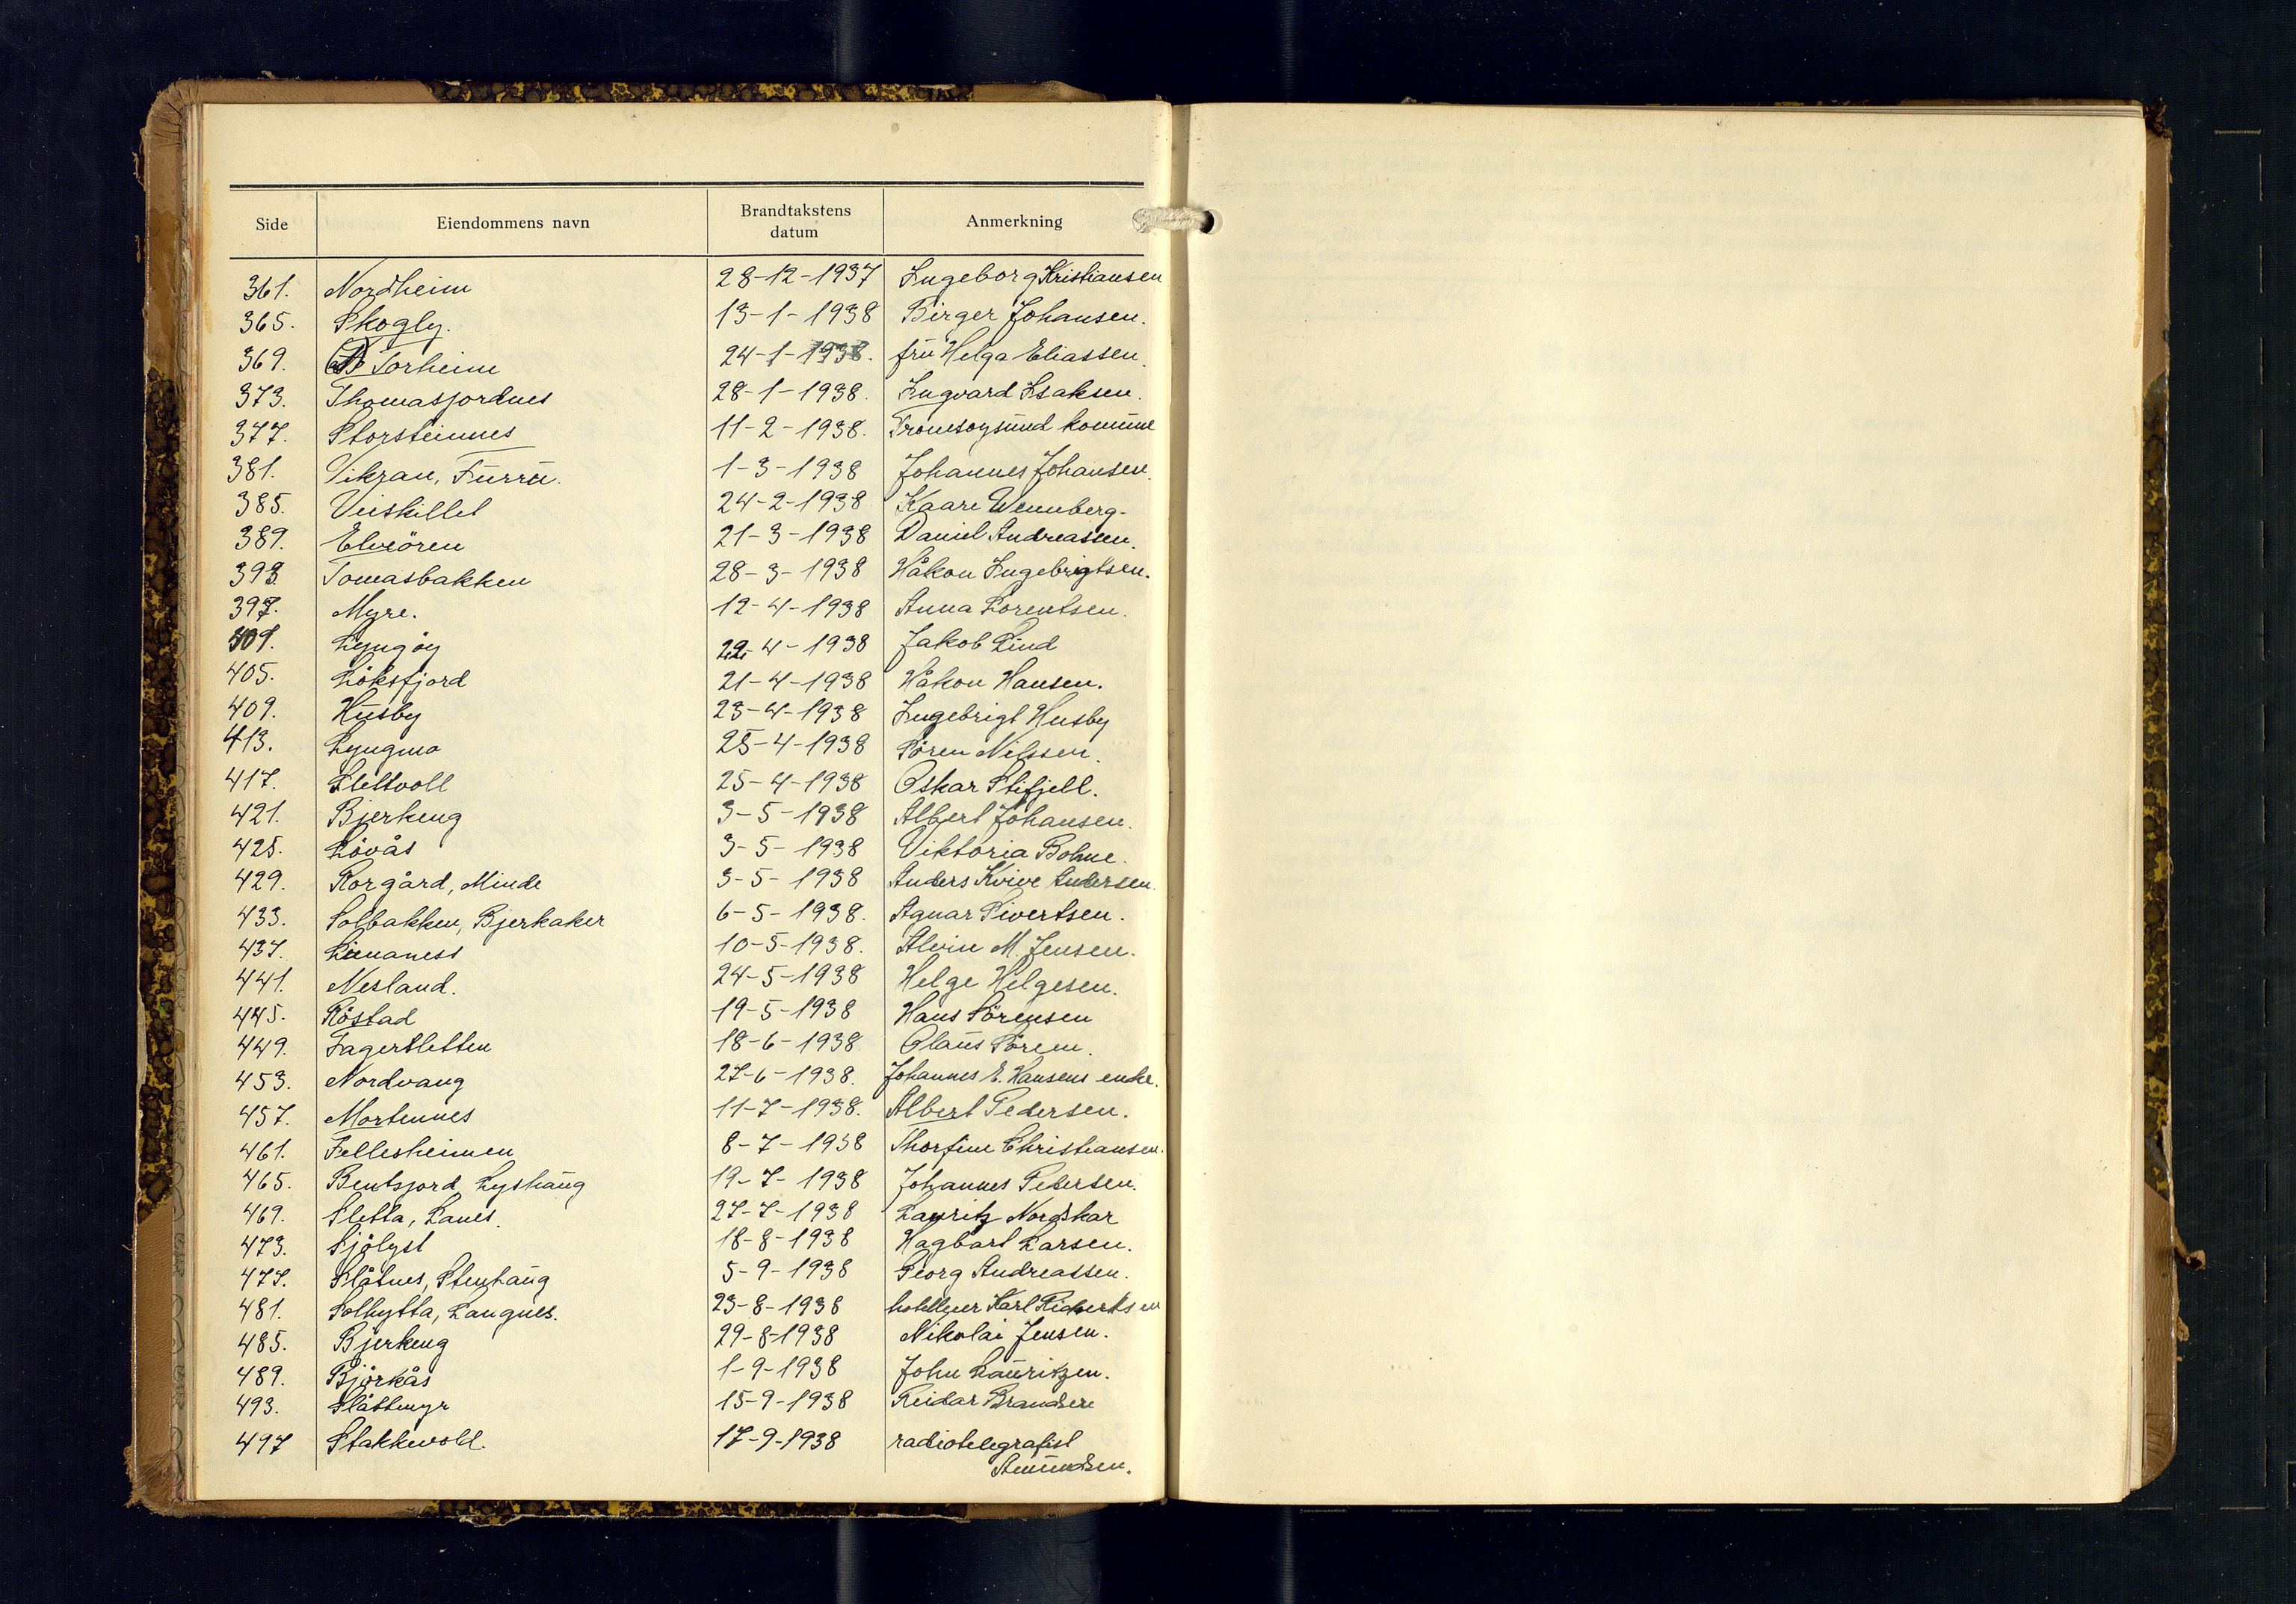 Side Eiendommens navn Brandtakstens datum Anmerkning
361. Nordheim 28-12-1937 Ingeborg Kristiansen
365. Skogly. 13-1-1938 Birger Johansen.
369. Torheim 24-1-1938. frü Helga Eliassen.
373. Thomasjordnes 28-1-1938. Ingvard Isaksen.
377. Storsteinnes 11-2-1938. Tromsøysünd komüne
381. Vikran, Fürrü. 1-3-1938 Johannes Johansen.
385. Veiskillet 24-2-1938 Kaare Wennberg.
389. Elveören 21-3-1938 Daniel Andreassen.
393. Tomasbakken 28-3-1938 Håkon Ingebrigtsen.
397. Myre. 12-4-1938 Anna Lorentsen.
401. Lyngöy 22-4-1938 Jakob Lind
405. Löksfjord 21-4-1938 Håkon Hansen.
409. Hüsby 23-4-1938 Ingebrigt Husby
413. Lyngmo 25-4-1938 Sören Nilssen.
417. Slettvoll 25-4-1938 Oskar Slifjell.
421. Bjerkeng 3-5-1938 Albert Johansen.
425. Lövås 3-5-1938 Viktoria Bohne.
429. Korgård, Minde 3-5-1938 Anders Kvive Andersen.
433. Solbakken, Bjerkaker 6-5-1938. Agnar Sivertsen.
437. 10-5-1938. Alvin M. Jensen.
441. Nesland. 24-5-1938 Helge Helgesen.
445. Röstad 19-5-1938 Hans Sörensen
449. Fagersletten 18-6-1938 Olaüs Sörem.
453. Nordvang 27-6-1938. Johannes E. Hansens enke.
457. Mortennes 11-7-1938. Albert Pedersen.
461. Fellesheimen 8-7-1938 Thorfinn Christiansen.
465. Bentsjord Lyshaüg 19-7-1938 Johannes Pedersen.
469. Sletta, Lanes. 27-7-1938 Lauritz Nordskar
473. Sjölyst 18-8-1938 Hagbart Larsen.
477. Slåtnes, Stenhaüg 5-9-1938 Georg Andreassen.
481. Solhytta, Langnes. 23-8-1938 hotelleier Karl Richertsen
485. Bjerkeng 29-8-1938 Nikolai Jensen.
489. Björkås 1-9-1938 John Laüritzen.
493. Slåttmyr 15-9-1938 Reidar
497 Stakkevold. 17-9-1938 radiotelegrafist
Amündsen.